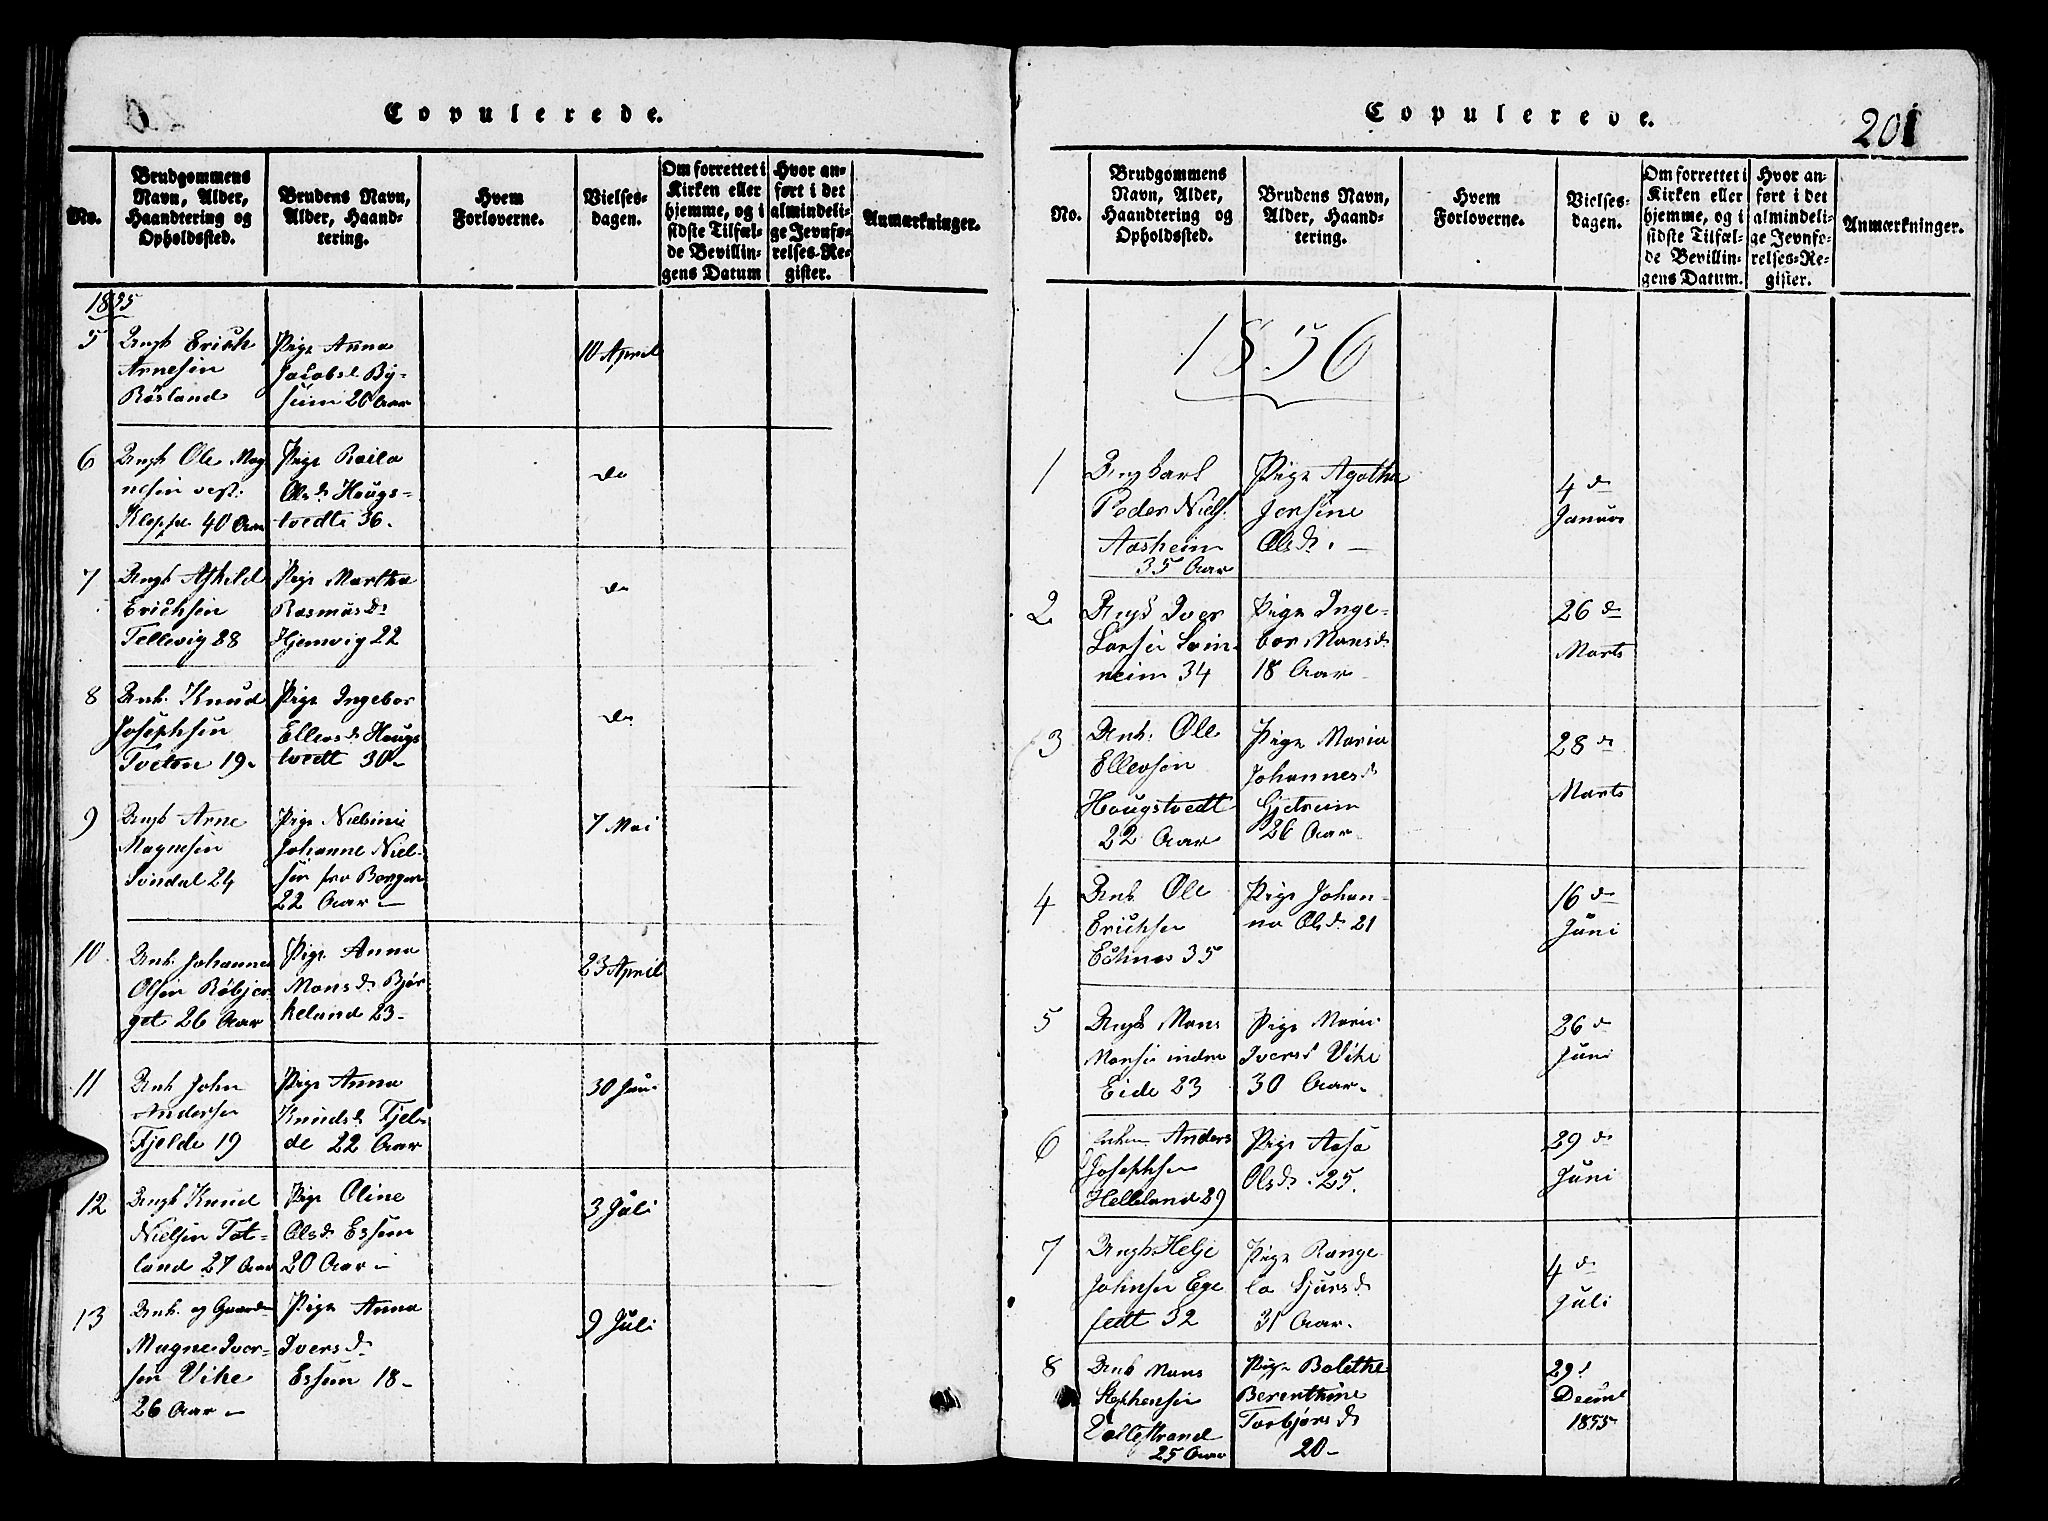 Copulerede.
No.
Brudgommens
Navn, Alder,
Haandtering og
Opholdssted.
Brudens Navn,
Alder, Haand-
tering.
Hvem
Forloverne.
Vielses-
dagen.
Om forrettet i
Kirken eller
hjemme, og i
sidste Tilfæl-
de Bevillin-
gens Datum
Hvor an-
ført i det
almindeli-
ge Jevnfø-
relses-Re-
gister.
Anmærkninger.
1855
5
Ungk Erich
Arnesen
Røsland
Pige Anna
Jacobsd By-
seim 20 Aar
10 April
6
Ungk Ole Mag
nesen vest.
Kleppe 40 Aar
Pige Raila
Olsd Hougs-
tvedt 36.
do
7
Ungk Askild
Erichsen
Tellevig 28
Pige Martha
Rasmusd
Hjemvig 22
do
8
Unk. Knud
Josephsen
Tveten 19
Pige Ingebor
Ellevsd Hougs
tvedt 30
do
9
Ungk Arne
Magnesen
Svindal 24
Pige Nielsine
Johanne Niel-
sen fra Bergen
22 Aar
7 Mai
10.
Unk. Johannes
Olsen Røbjer
get 26 Aar
Pige Anna
Monsd Bjør
keland 23
23 April
11
Unk John
Andersen
Fjelde 19
Pige Anna
Knudsd Fjel-
de 22 Aar
30
12
Ungk Knud
Nielsen Tot-
land 27 Aar
Pige Oline
Olsd Essem
20 Aar
3 Juli
13
Unk. og Gaardm
Magne Iver-
sen Vike
26 Aar
Pige Anna
Iversd
Essem 18
9 Juli
Copulerede.
201
No.
Brudgommens
Navn, Alder,
Haandtering og
Opholdssted.
Brudens Navn,
Alder, Haand-
tering.
Hvem
Forloverne.
Vielses-
dagen.
Om forrettet i
Kirken eller
hjemme, og i
sidste Tilfæl-
de Bevillin-
gens Datum.
Hvor an-
ført i det
almindeli-
ge Jevnfø-
relses-Re-
gister.
Anmærkninger.
1856
1
Ungkarl
Peder Niels.
Aasheim
35 Aar
Pige Agatha
Jersine
Olsd.
4 d
Januar
2
Ungk Iver
Larsen Svin
neim 34
Pige Inge-
bor Monsd
18 Aar
26 d
Marts
3
Unk. Ole
Ellevsen
Hougstvedt
22 Aar
Pige Maria
Johannesd
Gjetreim
26 Aar
28 d
Marts
4
Unk. Ole
Erichsen
Eknes 35
Pige Johan-
na Olsd 21
16 d
Juni
5
Ungk Mons
Monsen indre
Eide 23
Pige Maria
Iversd Vike
30 Aar.
26 d
Juni
6
Anders
Josephsen
Helleland 29
Pige Aasa
Olsd 25.
29 d
Juni
7
Ungk Helje
Johnsen Ege
fedt 32
Pige Range
la Sjursd
31 Aar.
4 d
Juli
8
Unk Mons
Stephensen
25 Aar
Pige Bolethe
Berenthine
Torbjørsd
20
29d
Decmb
1855